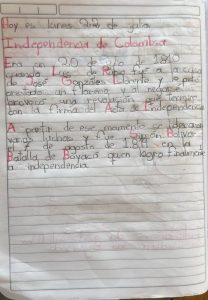 Hoy es lunes 22 de julio
Independencia de Colombia
Era un 20 de Julio de 1810
cuando Luis de Rubio fue a la casa
de José Gonzales Llorente y a pedir
prestado un florero, y al negarse
provocó una revolución que terminó
con la firma del Acta de Independencia
A partir de ese momento se
varias luchas y fue Simón Bolivar
de agosto de 1819 en la
Batalla de Boyacá quien logro finalmente
la independencia.